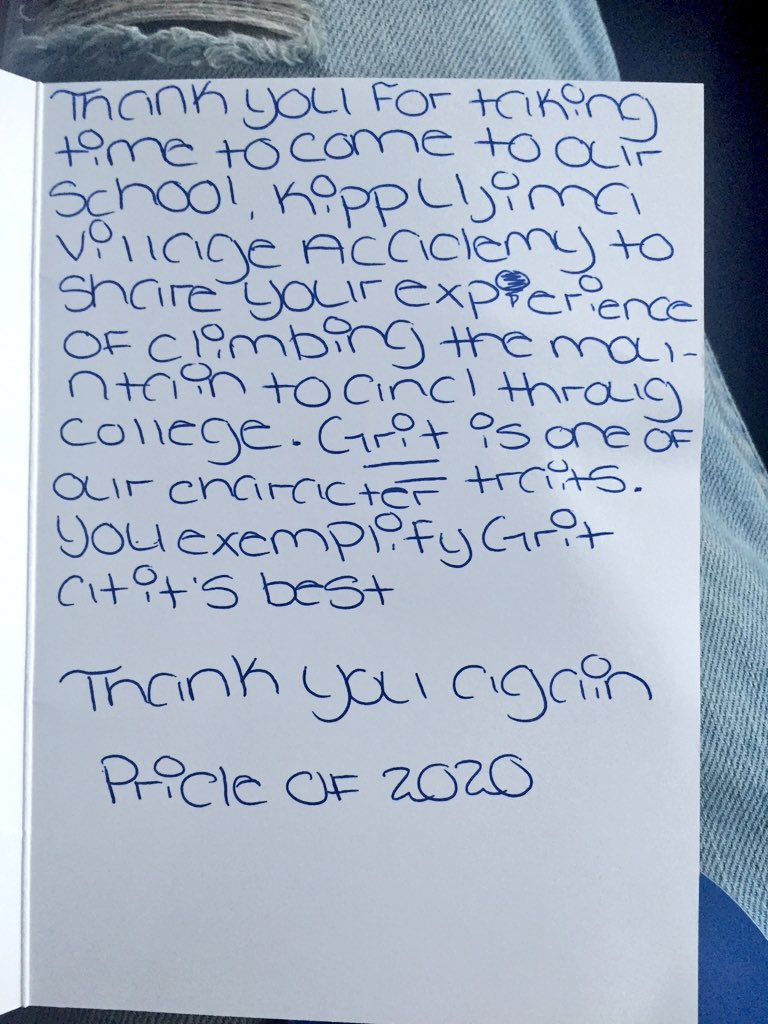 Thank you For taking
time to come to our
school, Kipp Ujima
Village Acadcademy to
share your experience
OF climbing the mou-
ntain to and throug
college. Grit is one OF
our character traits.
You exemplify Grit
at it's best
Thank you again
Pride OF 2020